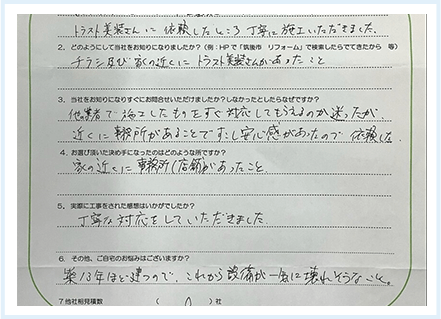 トラスト美装さんに依頼したところ丁寧に施工いただきました。
2．どのようにして当社をお知りになりましたか？（例：HPで「筑後市　リフォーム」で検索したらでてきたから　等）
チラシ及び家の近くにトラスト美装さんがあったこと
3．当社をお知りになりすぐにお問合せいただけましたか？しなかったとしたらなぜですか？
他の業者で施工したものをすぐ対応してもらえるのか迷ったが
近くに事務所があることですこし安心感があったので依頼した
4．お選び頂いた決め手になったのはどのような所ですか？
家の近くに事務所（店舗）があったこと
5．実際に工事をされた感想はいかがでしたか？
丁寧な対応をしていただきました。
6．その他、ご自宅のお悩みはございますか？
築13年ほど建つので、これから設備が一気に壊れそうなこと。
7 他社相見積数　（　0　）社